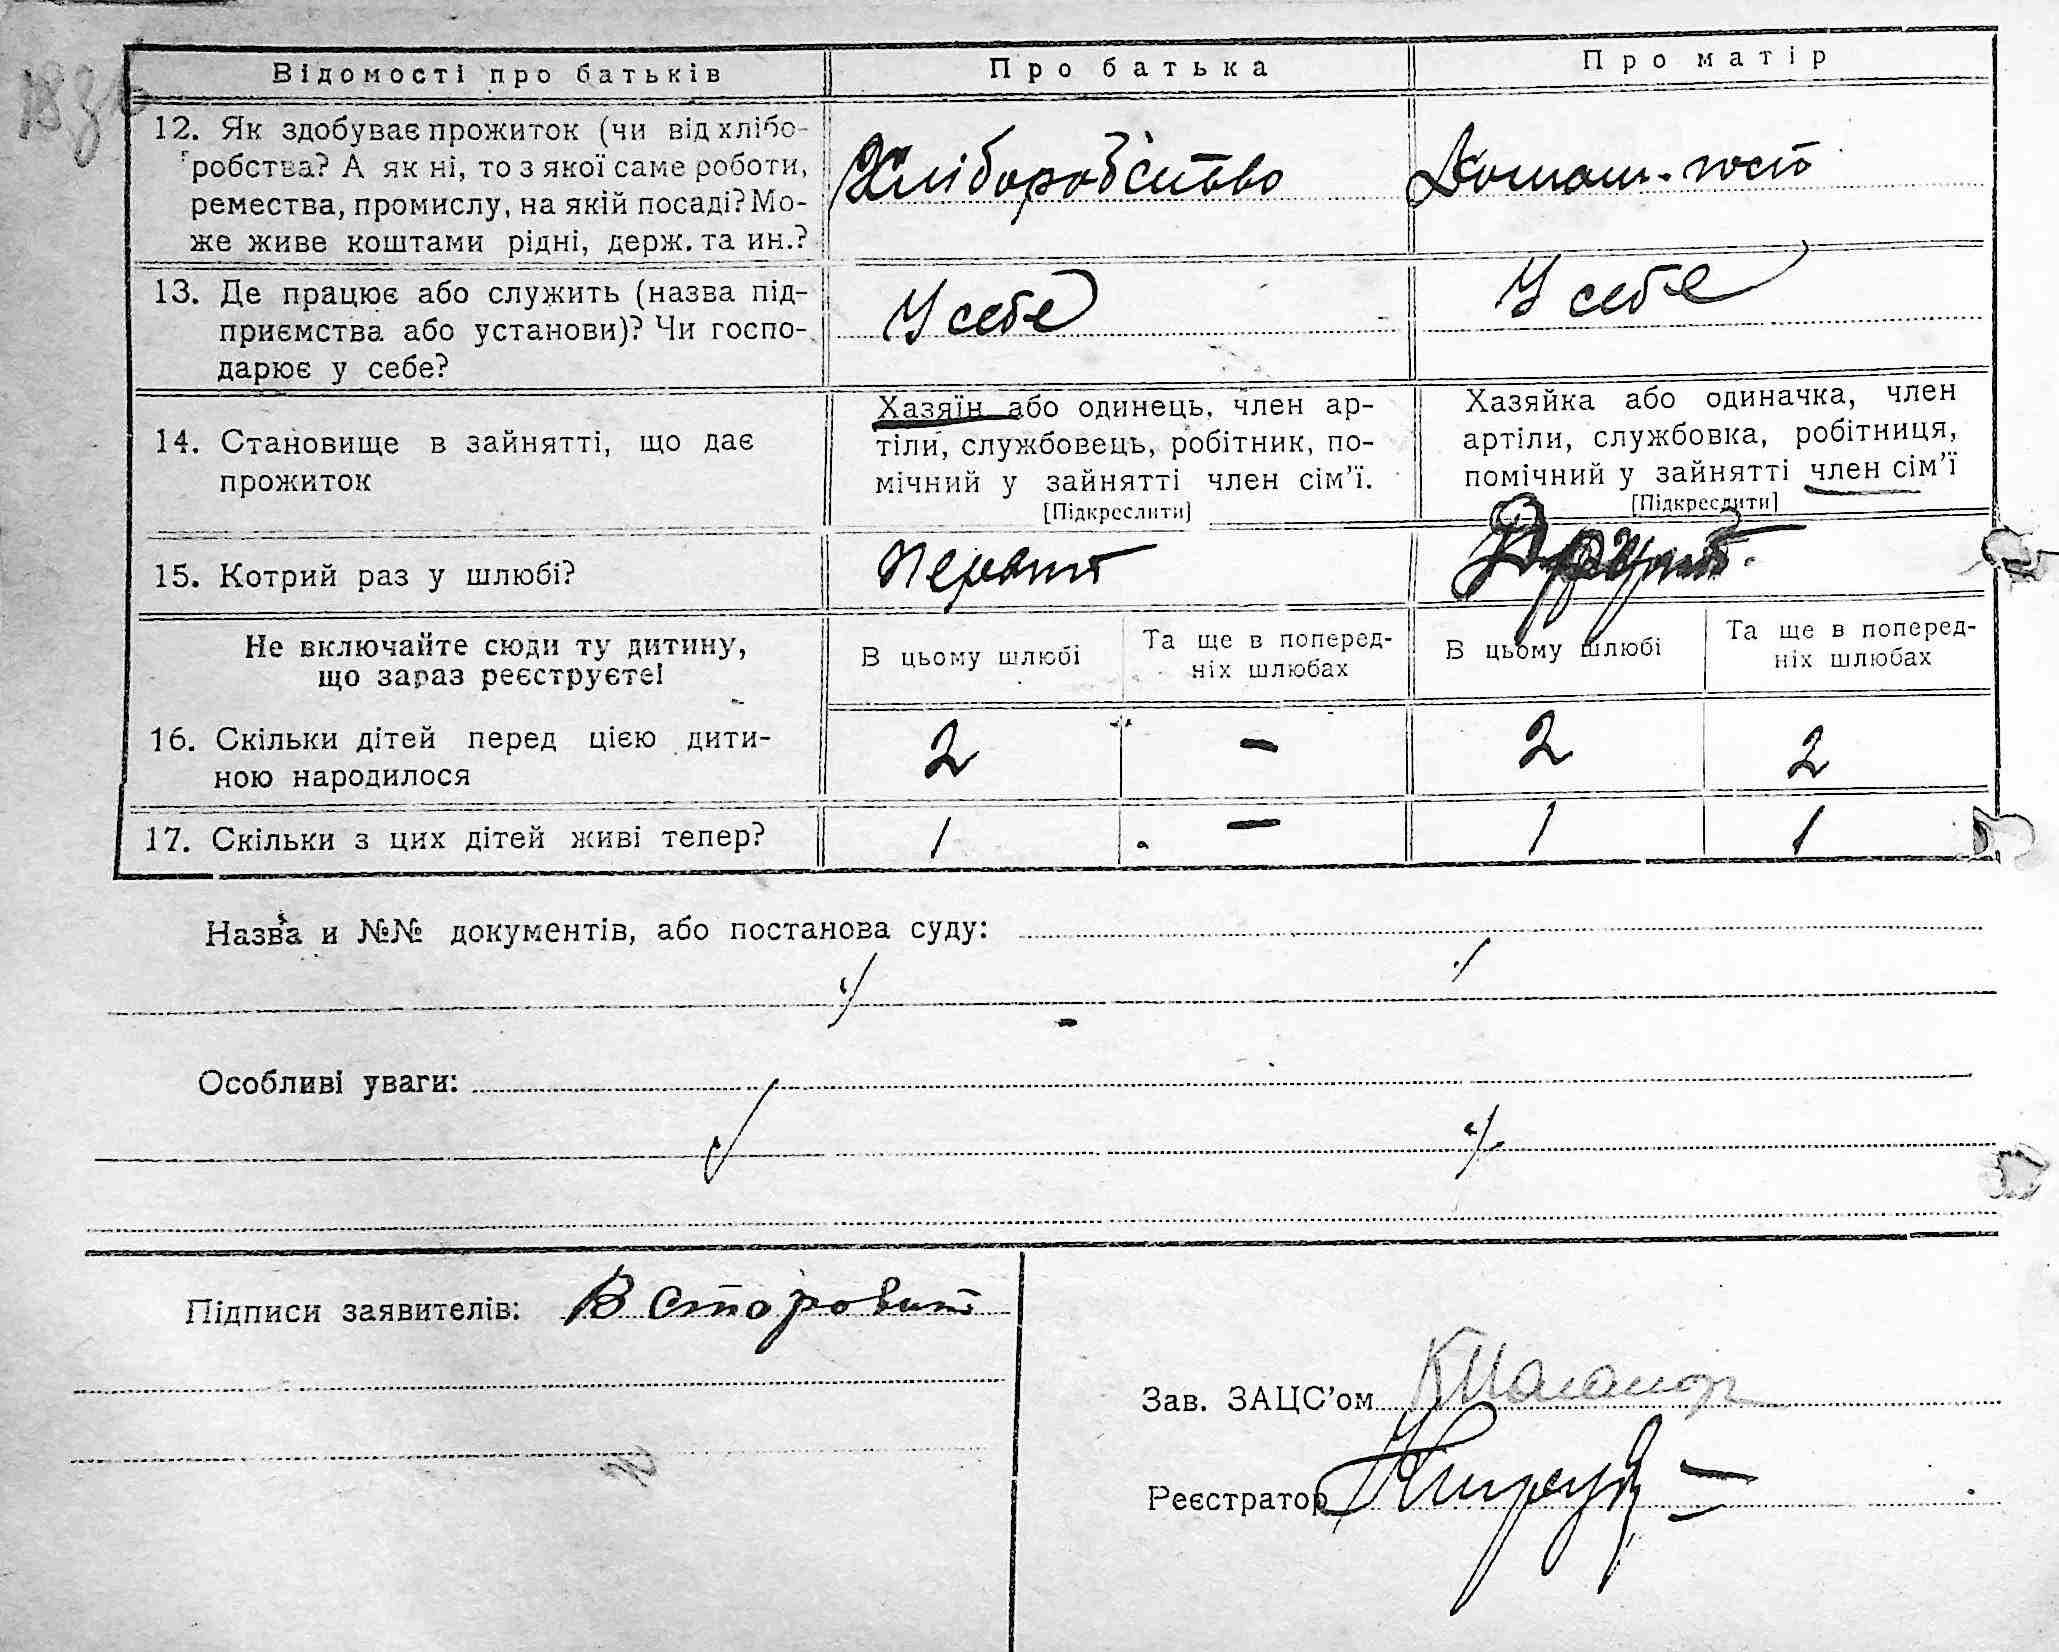 Відомості про батьків Про батька Про матір
12. Як здобуває прожиток (чи від хлібо-
робства? А як ні, то з якої саме роботи,
ремества, промислу, на якій посаді? Мо-
же живе коштами рідні, держ. та ин.?
Хліборобство
Домаш. госп
13. Де працює або служить (назва під-
приємства або установи)? Чи госпо-
дарює у себе?
У себе
У себе
14. Становище в зайнятті, що дає
прожиток
Хазяїн або одинець, член ар-
тіли, службовець, робітник, по-
мічний у зайнятті член сім’ї.
[Підкреслити]
Хазяйка або одиначка, член
артіли, службовка, робітниця,
помічний у зайнятті член сім’ї
[Підкреслити]
15. Котрий раз у шлюбі?
Не включайте сюди ту дитину,
що зараз реєструєте!
В цьому шлюбі
Та ще в поперед-
ніх шлюбах
В цьому шлюбі
Та ще в поперед-
ніх шлюбах
16. Скільки дітей перед цією дити-
ною народилося
2 - 2 2
17. Скільки з цих дітей живі тепер?
1 - 1 1
Назва и №№ документів, або постанова суду:
Особливі уваги:
Підписи заявителів:
Зав. ЗАЦС’ом
Реєстратор